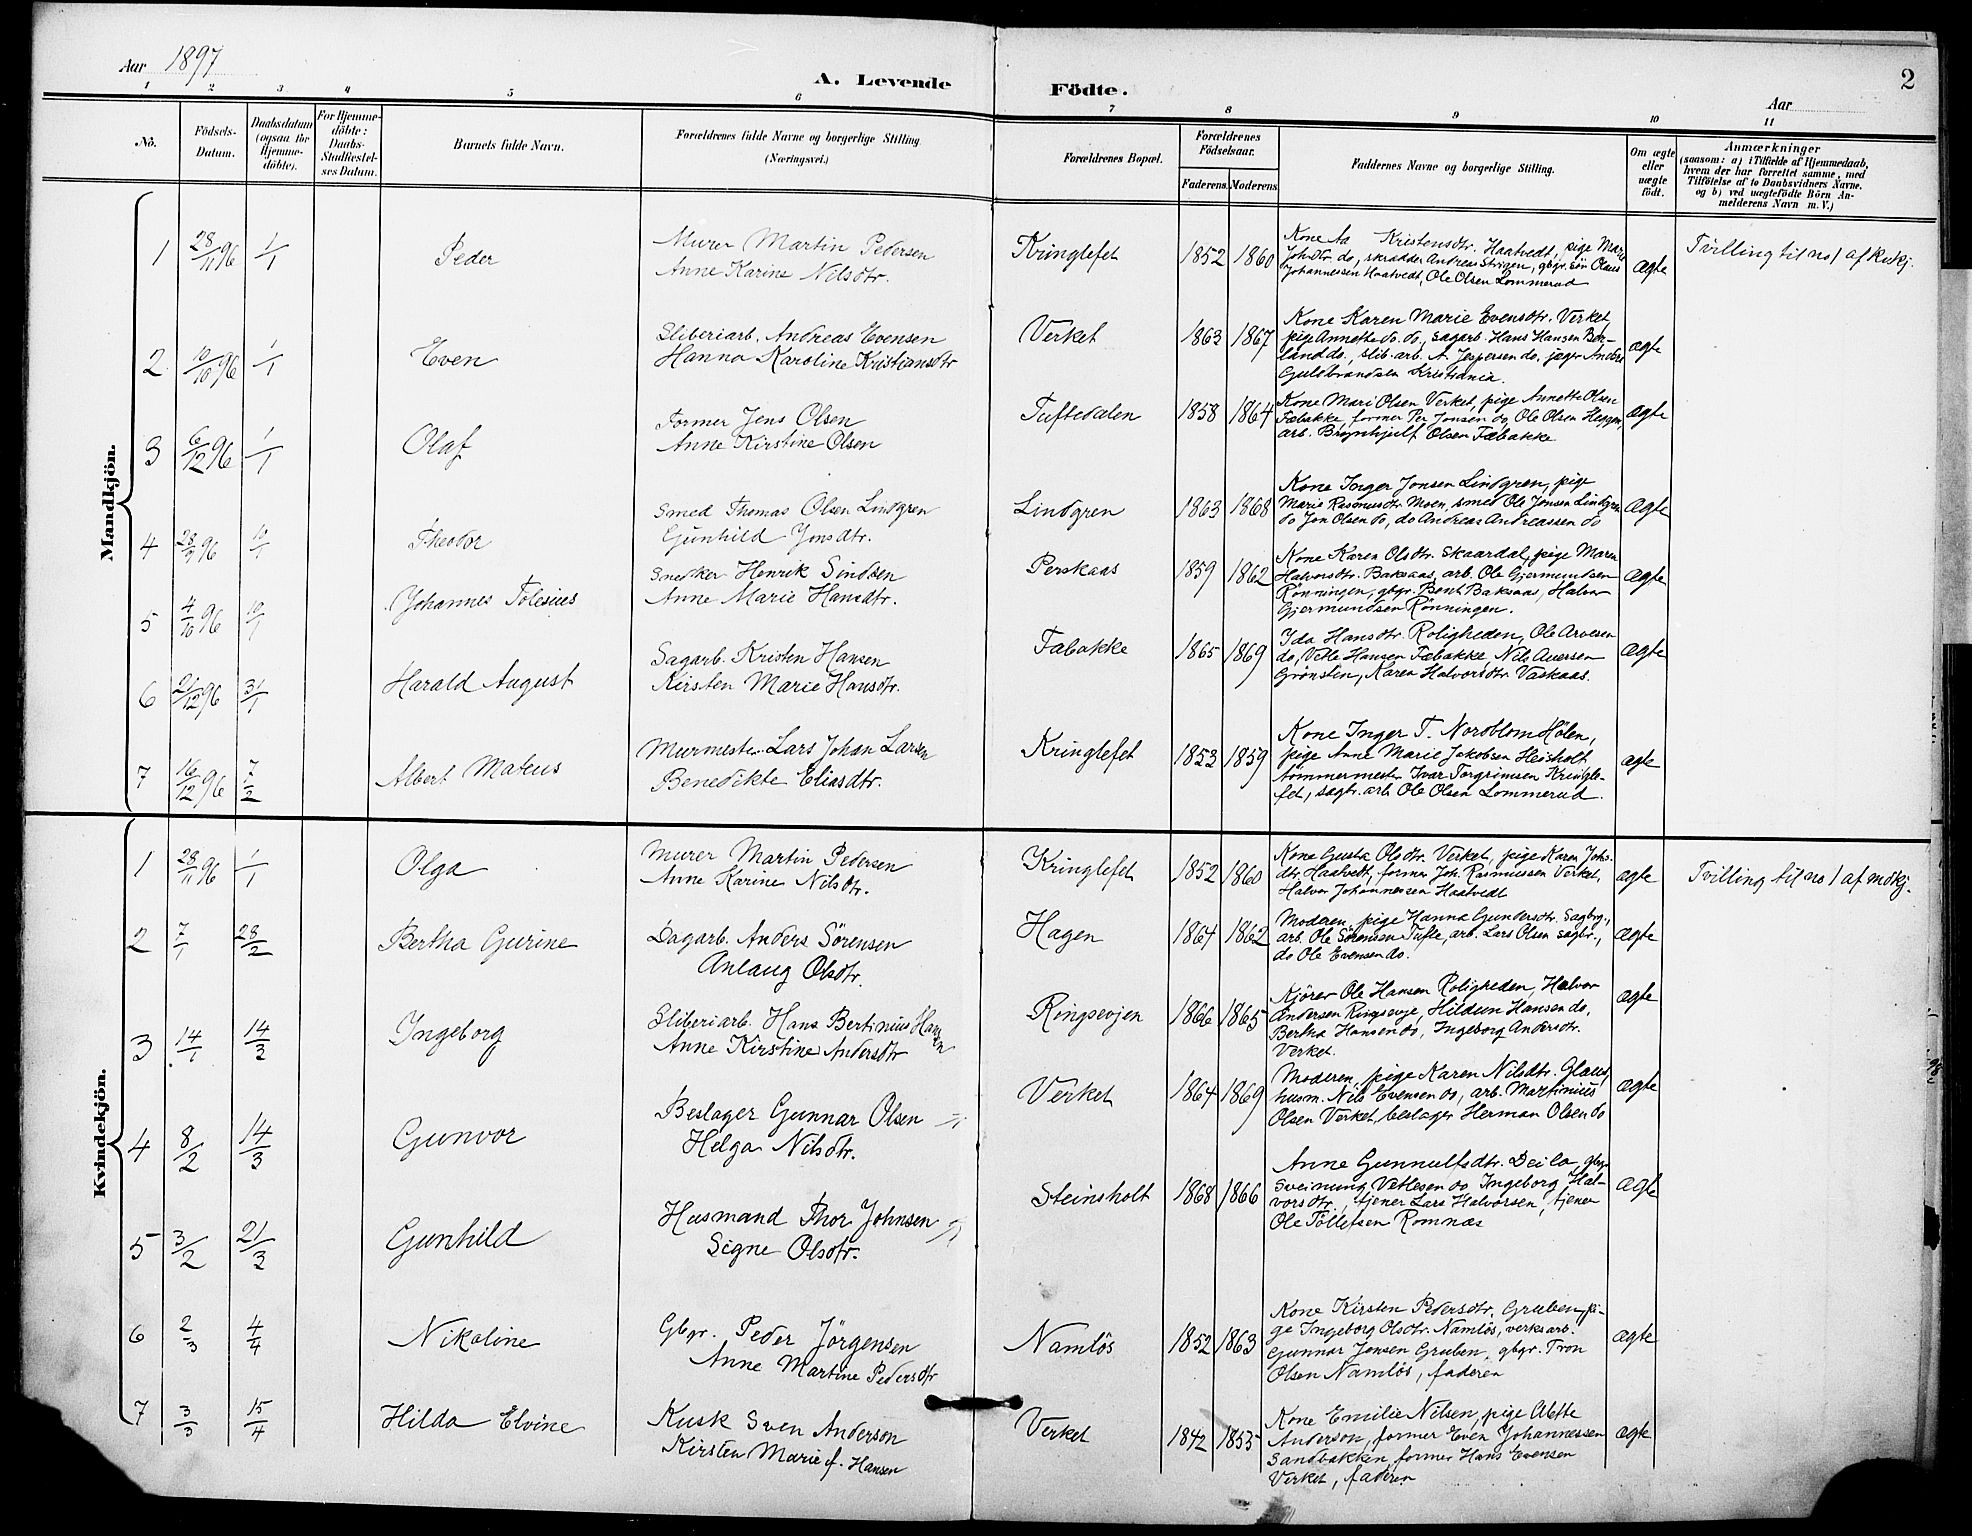 Aar 1897
A. Levende Födte.
2
Aar
1 2 3 4 5 6 7 8 9 10 11
No.
Födsels-
Datum.
Daabsdatum
(ogsaa for
Hjemme-
döbte).
For Hjemme-
döbte:
Daabs-
Stadfæstel-
ses Datum.
Barnets fulde Navn.
Forældrenes fulde Navne og borgerlige Stilling
(Næringsvei.)
Forældrenes Bopæl.
Forældrenes
Födselsaar.
Faderens. Moderens.
Faddernes Navne og borgerlige Stilling.
Om ægte
eller
uægte
födt.
Anmærkninger
(saasom: a) i Tilfælde af Hjemmedaab,
hvem der har forrettet samme, med
Tilföielse af to Daabsvidners Navne.
og b) ved uægtefödte Börn An-
melderens Navn m. V.)
Mandkjön.
1 28/11 96 1/1 Peder
Murer Martin Pedersen
Anne Karine Nilsdtr.
Kringlefet 1852 1860
Kone Aa Kristensdtr. Haatvedt, pige Maria
Johsdtr. do, skrædder Andreas Strigen, gbgr. sön Olaus
Johannessen Haatvedt, Ole Olsen Lommerud
ægte
Tvilling til no 1 af kvkj.
2 10/10 96 1/1 Even
Sliberiarb. Andreas Evensen
Hanna Karoline Kristiansdtr
Verket 1863 1867
Kone Karen Marie Evensdtr. Verket
pige Annette do. do, sagarb. Hans Hansen Bör-
land do., slib. arb. A. Jespersen do, jæger Anders
Gulbrandsen Kristiania.
ægte
3 6/12 96 1/1 Olaf
Former Jens Olsen
Anne Kirstine Olsen
Tuftedalen 1858 1864
Kone Mari Olsen Verket, pige Annette Olsen
Fæbakke, former Per Jonsen do, Ole Olsen Heggen,
arb. Brynhjulf Olsen Fæbakke
ægte
4 28/9 96 10/1 Theodor
Smed Thomas Olsen Lindgren
Gunhild Jonsdtr.
Lindgren 1863 1868
Kone Inger Jonsen Lindgren, pige
Marie Rasmusdtr Moen, smed Ole Jonsen Lindgren
do Jon Olsen do, do Andreas Andreassen do
ægte
5 4/10 96 10/1 Johannes Tolesius
Snedker Henrik Sindsen
Anne Marie Hansdtr.
Perskaas 1859 1862
Kone Karen Olsdtr. Skaardal, pige Maren
Halvorsdtr. Baksaas, arb. Ole Gjermundsen
Rönningen, gbgr. Bent Baksaas, Halvor
Gjermundsen Rönningen.
ægte
6 21/12 96 31/1 Harald August
Sagarb. Kristen Hansen
Kirsten Marie Hansdtr.
Fæbakke 1865 1869
Ida Hansdtr. Roligheden, Ole Arvesen
do, Vetle Hansen Fæbakke, Nils Auersen
Grönsten, Karen Halvorsdtr Vaskaas.
ægte
7 16/12 96 7/2 Albert Mateus
Murmester Lars Johan Larsen
Benedikte Eliasdtr.
Kringlefet 1853 1859
Kone Inger T. Nordblom Hölen,
pige Anne Marie Jakobsen Heisholt
tömmermester Ivar Torgrimsen Kringle-
fet, sagbr. arb Ole Olsen Lommerud.
ægte
Kvindekjön.
1 28/11 96 1/1 Olga
Murer Martin Pedersen
Anne Karine Nilsdtr.
Kringlefet 1852 1860
Kone Gusta Olsdtr. Verket, pige Karen Johs.
dtr. Haatvedt, former Joh. Rasmussen Verket,
Halvor Johannessen Haatvedt
ægte
Tvilling til no 1 af mdkj.
2 7/1 28/2 Bertha Gurine
Dagarb. Anders Sörensen
Anlaug Olsdtr.
Hagen 1864 1862
Moderen, pige Hanna Gundersdtr. Sagbrg.,
arb. Ole Sörensen Tufte, arb. Lars Olsen sagbr.,
do Ole Evensen do.
ægte
3 14/1 14/3 Ingeborg
Sliberiarb. Hans Bertinius Hansen
Anne Kirstine Andersdtr
Ringsevjen 1866 1865
Kjörer Ole Hansen Roligheden, Halvor
Andersen Ringsevje, Hildum Hansen do,
Bertha Hansen do, Ingeborg Andersdtr.
Verket.
ægte
4 8/2 14/3 Gunvor
Beslager Gunnar Olsen
Helga Nilsdtr.
Verket 1864 1869
Moderen, pige Karen Nilsdtr. Glaus,
husm. Nils Evensen do, arb. Martinius
Olsen Verket, beslager Herman Olsen do
ægte
5 3/2 21/3 Gunhild
Husmand Thor Johnsen
Signe Olsdtr.
Steinsholt 1868 1866
Anne Gunnulfsdtr. Deila, gbgr
Sveinung Vetlesen do, Ingeborg Hal-
vorsdtr., tjener Lars Halvorsen, tjener
Ole Tollefsen Romnæs
ægte
6 2/3 4/4 Nikoline
Gbgr. Peder Jörgensen
Anne Martine Pedersdtr
Namlös 1852 1863
Kone Kirsten Pedersdtr. Gruben, pi-
ge Ingeborg Olsdtr. Namlös, verksarb.
Gunnar Jensen Gruben, gbgr. Tron
Olsen Namlös, faderen
ægte
7 3/3 15/4 Hilda Elvine
Kusk Sven Anderson
Kirsten Marie f. Hansen
Verket 1842 1855
Kone Emilie Nilsen, pige Alette
Anderson, former Even Johannessen
Sandbakken, former Hans Evensen
Verket, faderen
ægte